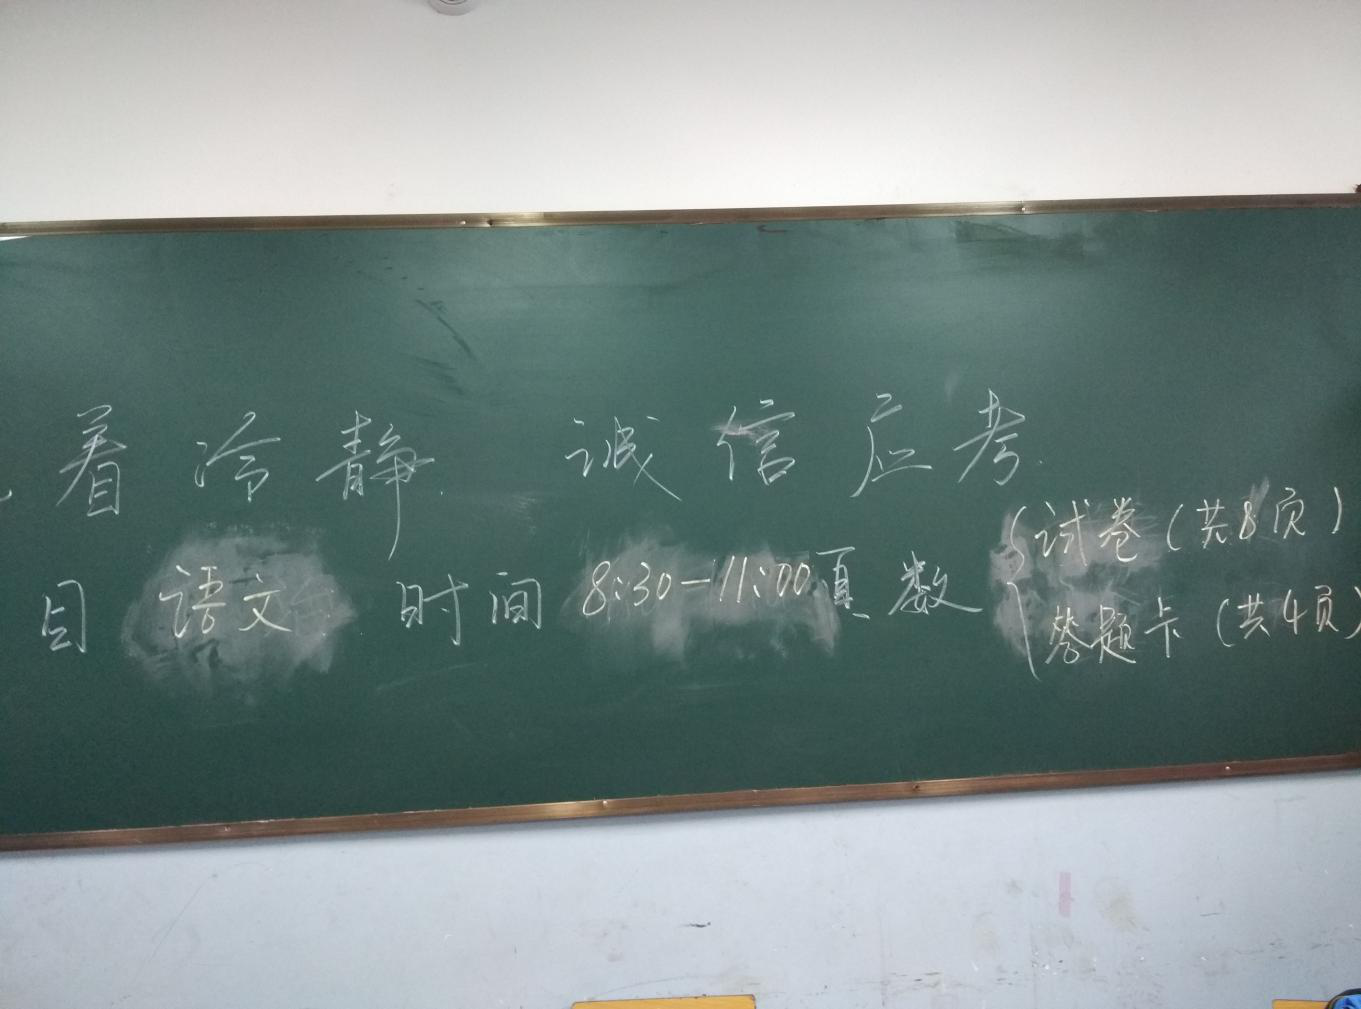 着冷静 诚信应考
目 语文 时间 8:30-11:00 頁数
试卷(共8页)
答题卡(共4页)